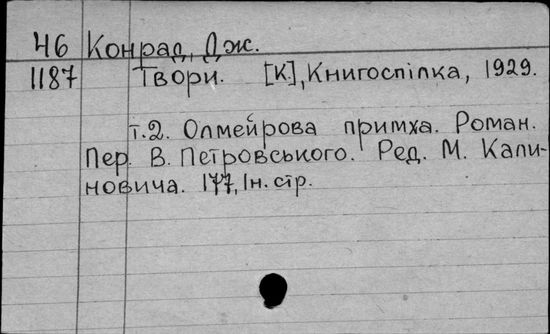 46 Конрад, Дж.
1187 Твори. [К.], Книгоспілка, 1929.
т.2. Олмейрова примха. Роман.
Пер. В. Петровського. Ред. М. Кали-
новича. 177, Ін. стр.